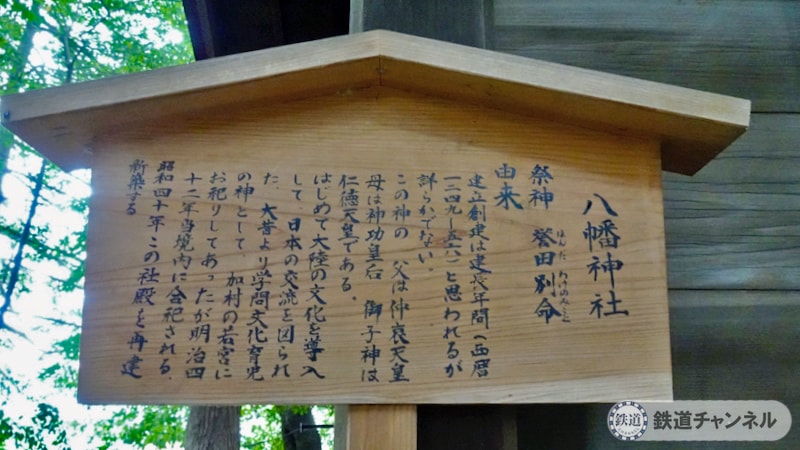 八幡神社
祭神　誉田別命
ほんだ わけのみこと
由来
建立創建は建長年間（西暦
一二四九〜五六）と思われるが
詳らかでない。
この神の　父は仲哀天皇
母は神功皇后　御子神は
仁徳天皇である。
はじめて大陸の文化を導入
して　日本の交流を図られ
た　大昔より学問文化育児
の神として　加村の若宮に
お祀りしてあったが明治四
十二年当境内に合祀される、
昭和四十年この社殿を再建
新築する
鉄道
鉄道チャンネル